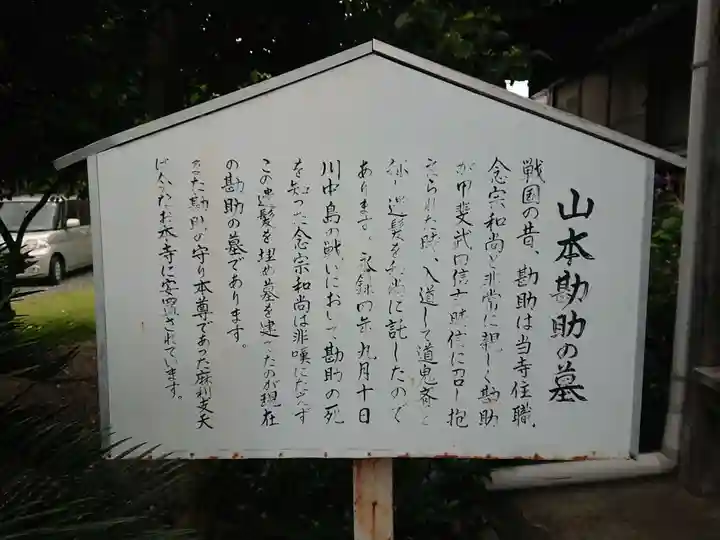 山本勘助の墓
戦国の昔、勘助は当寺住職、
念宗和尚と非常に親しく勘助
が甲斐武田信玄晴信に召し抱
えられた時、入道して道鬼斎と
称し遺髪を和尚に託したので
あります。永録四年九月十日
川中島の戦いにおいて勘助の死
を知った念宗和尚は非嘆にたえず
この遺髪を埋め墓を建てたのが現在
の勘助の墓であります。
また勘助の守り本尊であった摩利支天
は今なお本寺に安置されています。